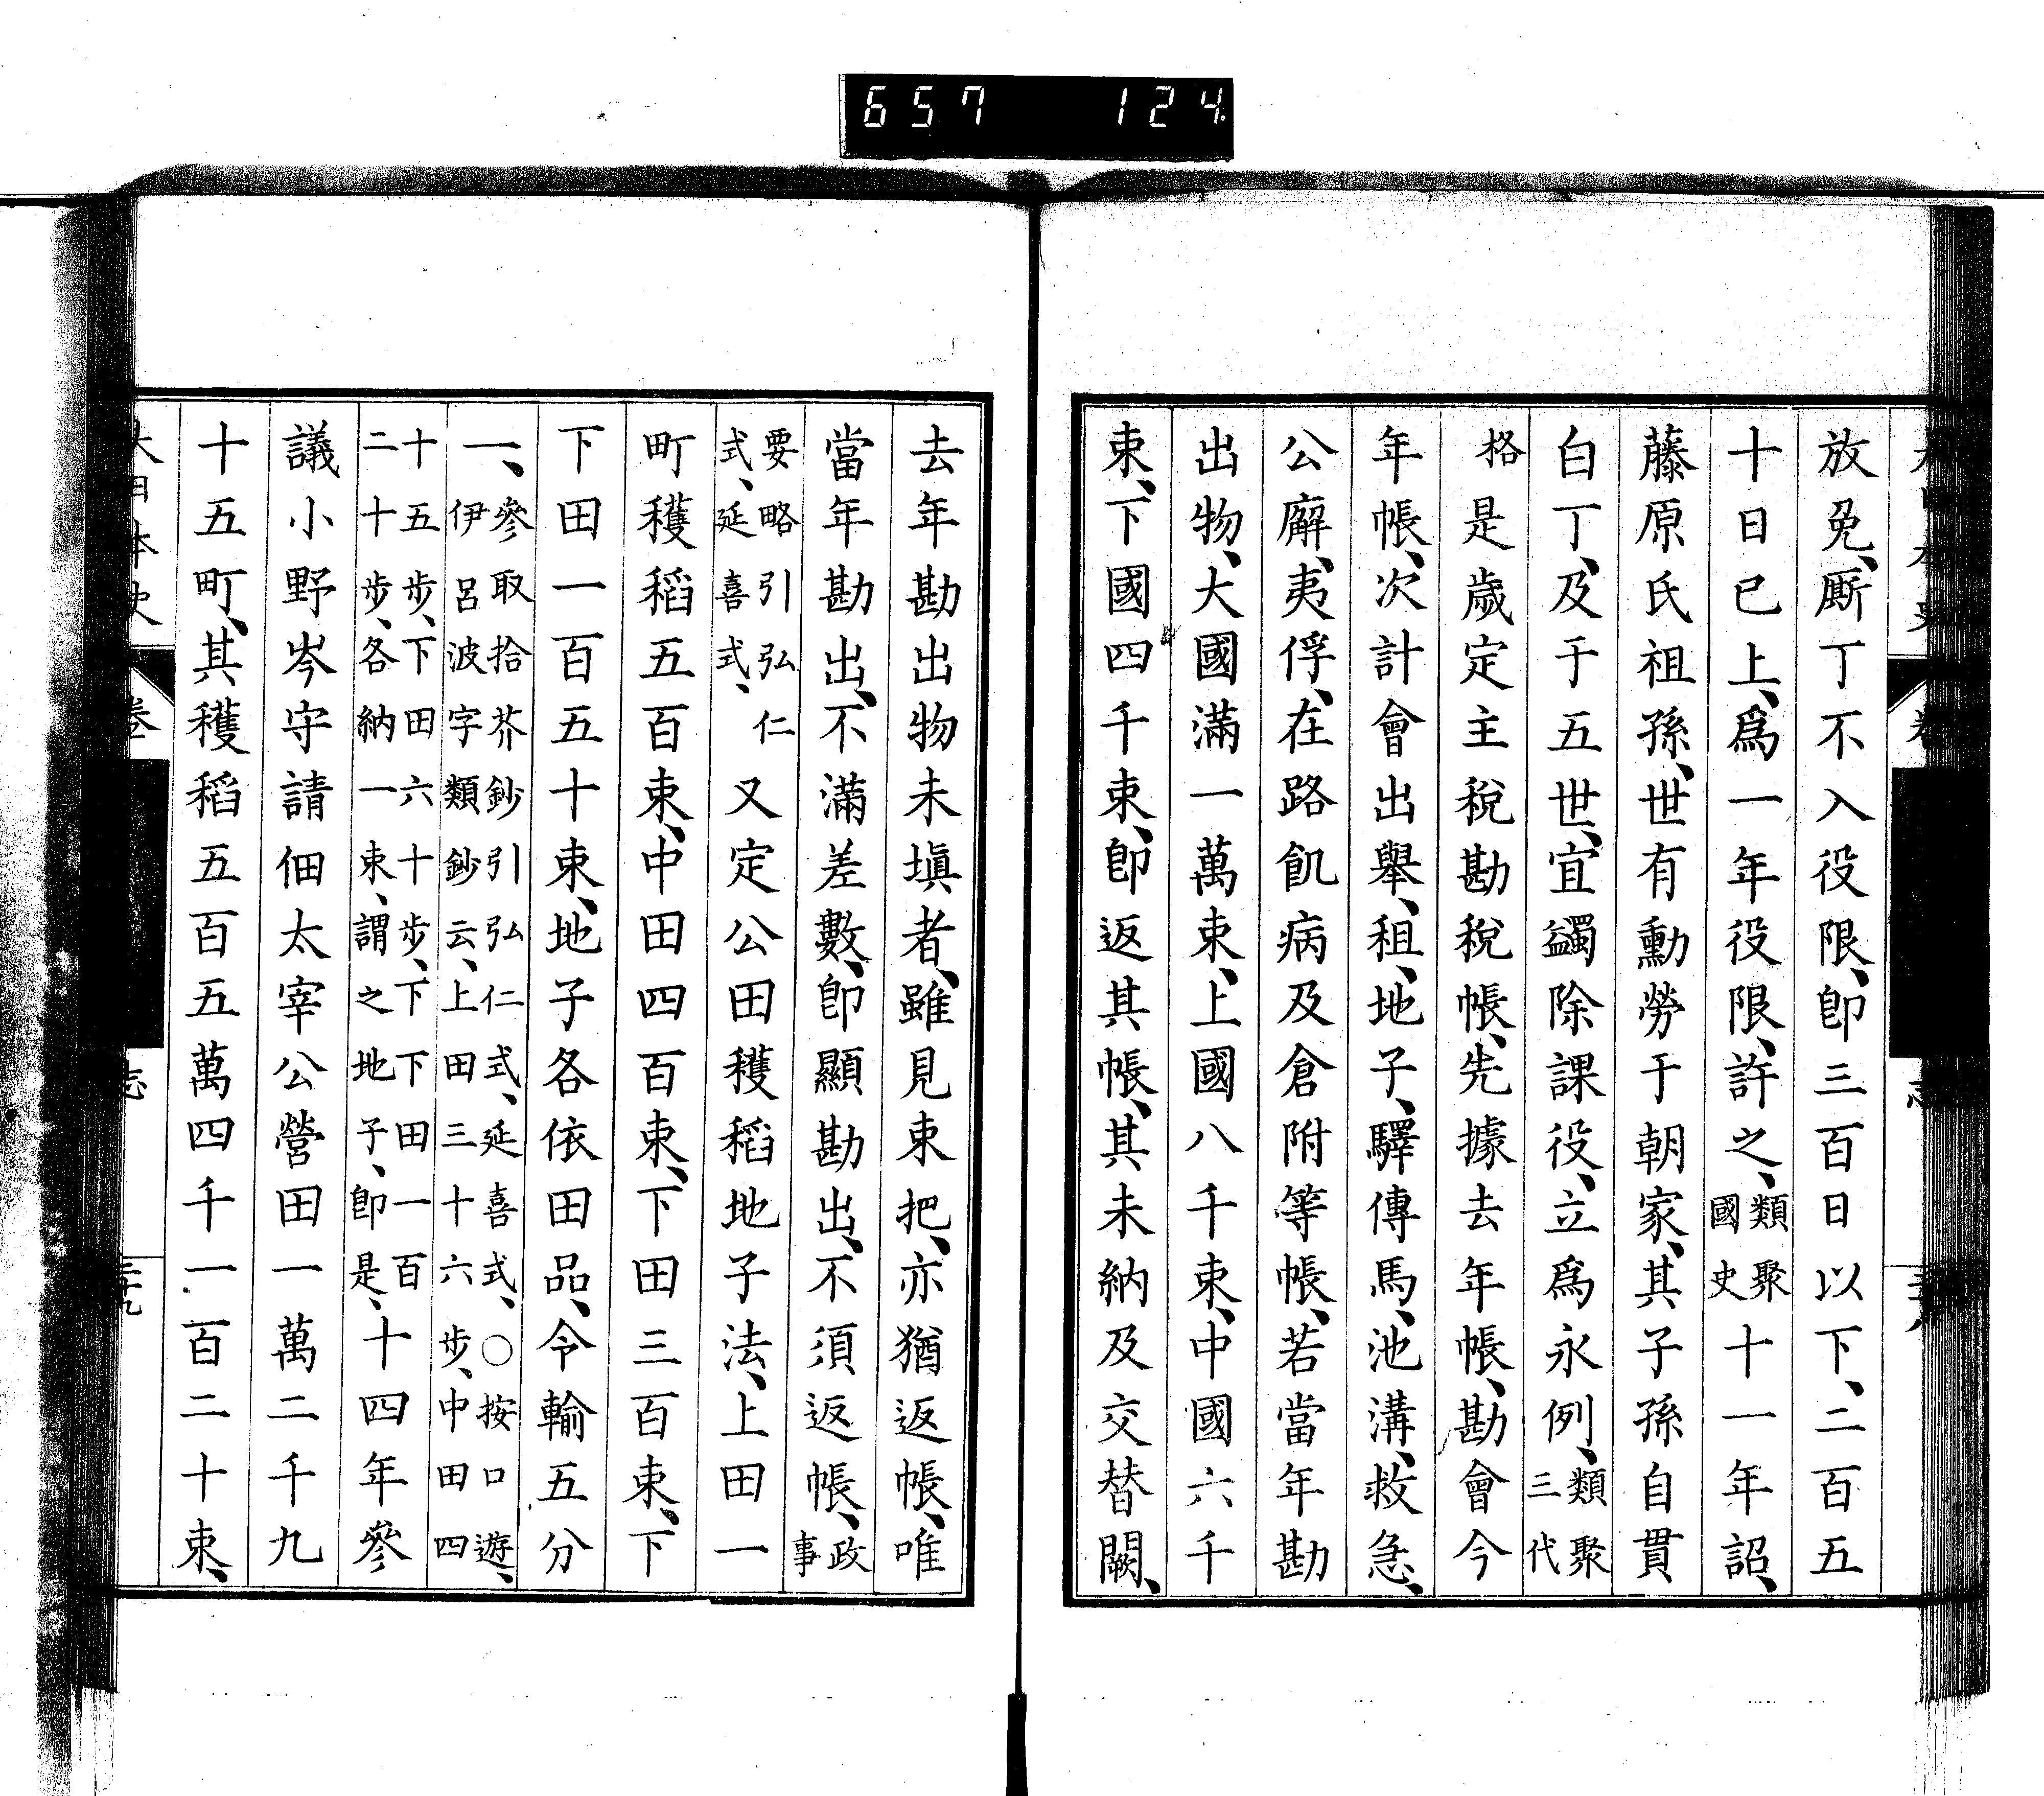 657 124
放免、厮丁不入役限、卽三百日以下、二百五
十日已上、爲一年役限、許之、類聚國史十一年詔、
藤原氏祖孫、世有勳勞于朝家、其子孫自貫
白丁、及于五世、宜蠲除課役、立爲永例、類聚三代
格是歲定主稅勘稅帳、先據去年帳、勘會今
年帳、次計會出擧、租、地子、驛傳馬、池溝、救急、
公廨、夷俘、在路飢病及倉附等帳、若當年勘
出物、大國滿一萬束、上國八千束、中國六千
束、下國四千束、卽返其帳、其未納及交替闕、
去年勘出物未塡者、雖見束把、亦猶返帳、唯
當年勘出、不滿差數、卽顯勘出、不須返帳、政事
要略引弘仁式、延喜式、又定公田穫稻地子法、上田一
町穫稻五百束、中田四百束、下田三百束、下
下田一百五十束、地子各依田品、令輸五分
一、參取拾芥鈔引弘仁式、延喜式、○按口遊、伊呂波字類鈔云、上田三十六步、中田四
十五步、下田六十步、下下田一百二十步、各納一束、謂之地子、卽是、十四年參
議小野岑守請佃太宰公營田一萬二千九
十五町、其穫稻五百五萬四千一百二十束、
大日本史 卷 志 三十九